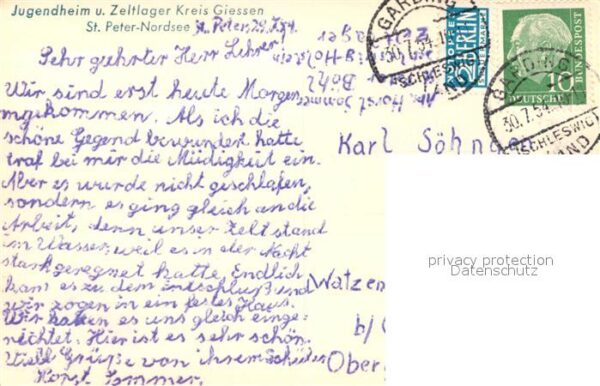 Jugendheim u. Zeltlager Kreis Giessen
St. Peter-Nordsee
St. Peter, 29.7.54
Sehr geehrter Herr Lehrer!
Wir sind erst heute Morgen
angekommen. Als ich die
schöne Gegend bewundert hatte
traf bei mir die Müdigkeit ein.
Aber es wurde nicht geschlafen,
sondern es ging gleich an die
Arbeit, denn unser Zelt stand
im Wasser, weil es in der Nacht
stark geregnet hatte. Endlich
kam es zu dem Entschluß und
wir zogen in ein festes Haus.
Wir haben es uns gleich einge-
richtet. Hier ist es sehr schön.
Viele Grüße von ihrem Schüler
Horst Sommer.
Horst Sommer
Böhl
Zeltlager
Karl Söhngen
Watzen
b/
Ober
GARDING
30.7.54
SCHLESWIG
NOTOPFER
2 BERLIN
10
DEUTSCHE BUNDESPOST
GARDING
30.7.54
(SCHLESWIG)
LAND
privacy protection
Datenschutz